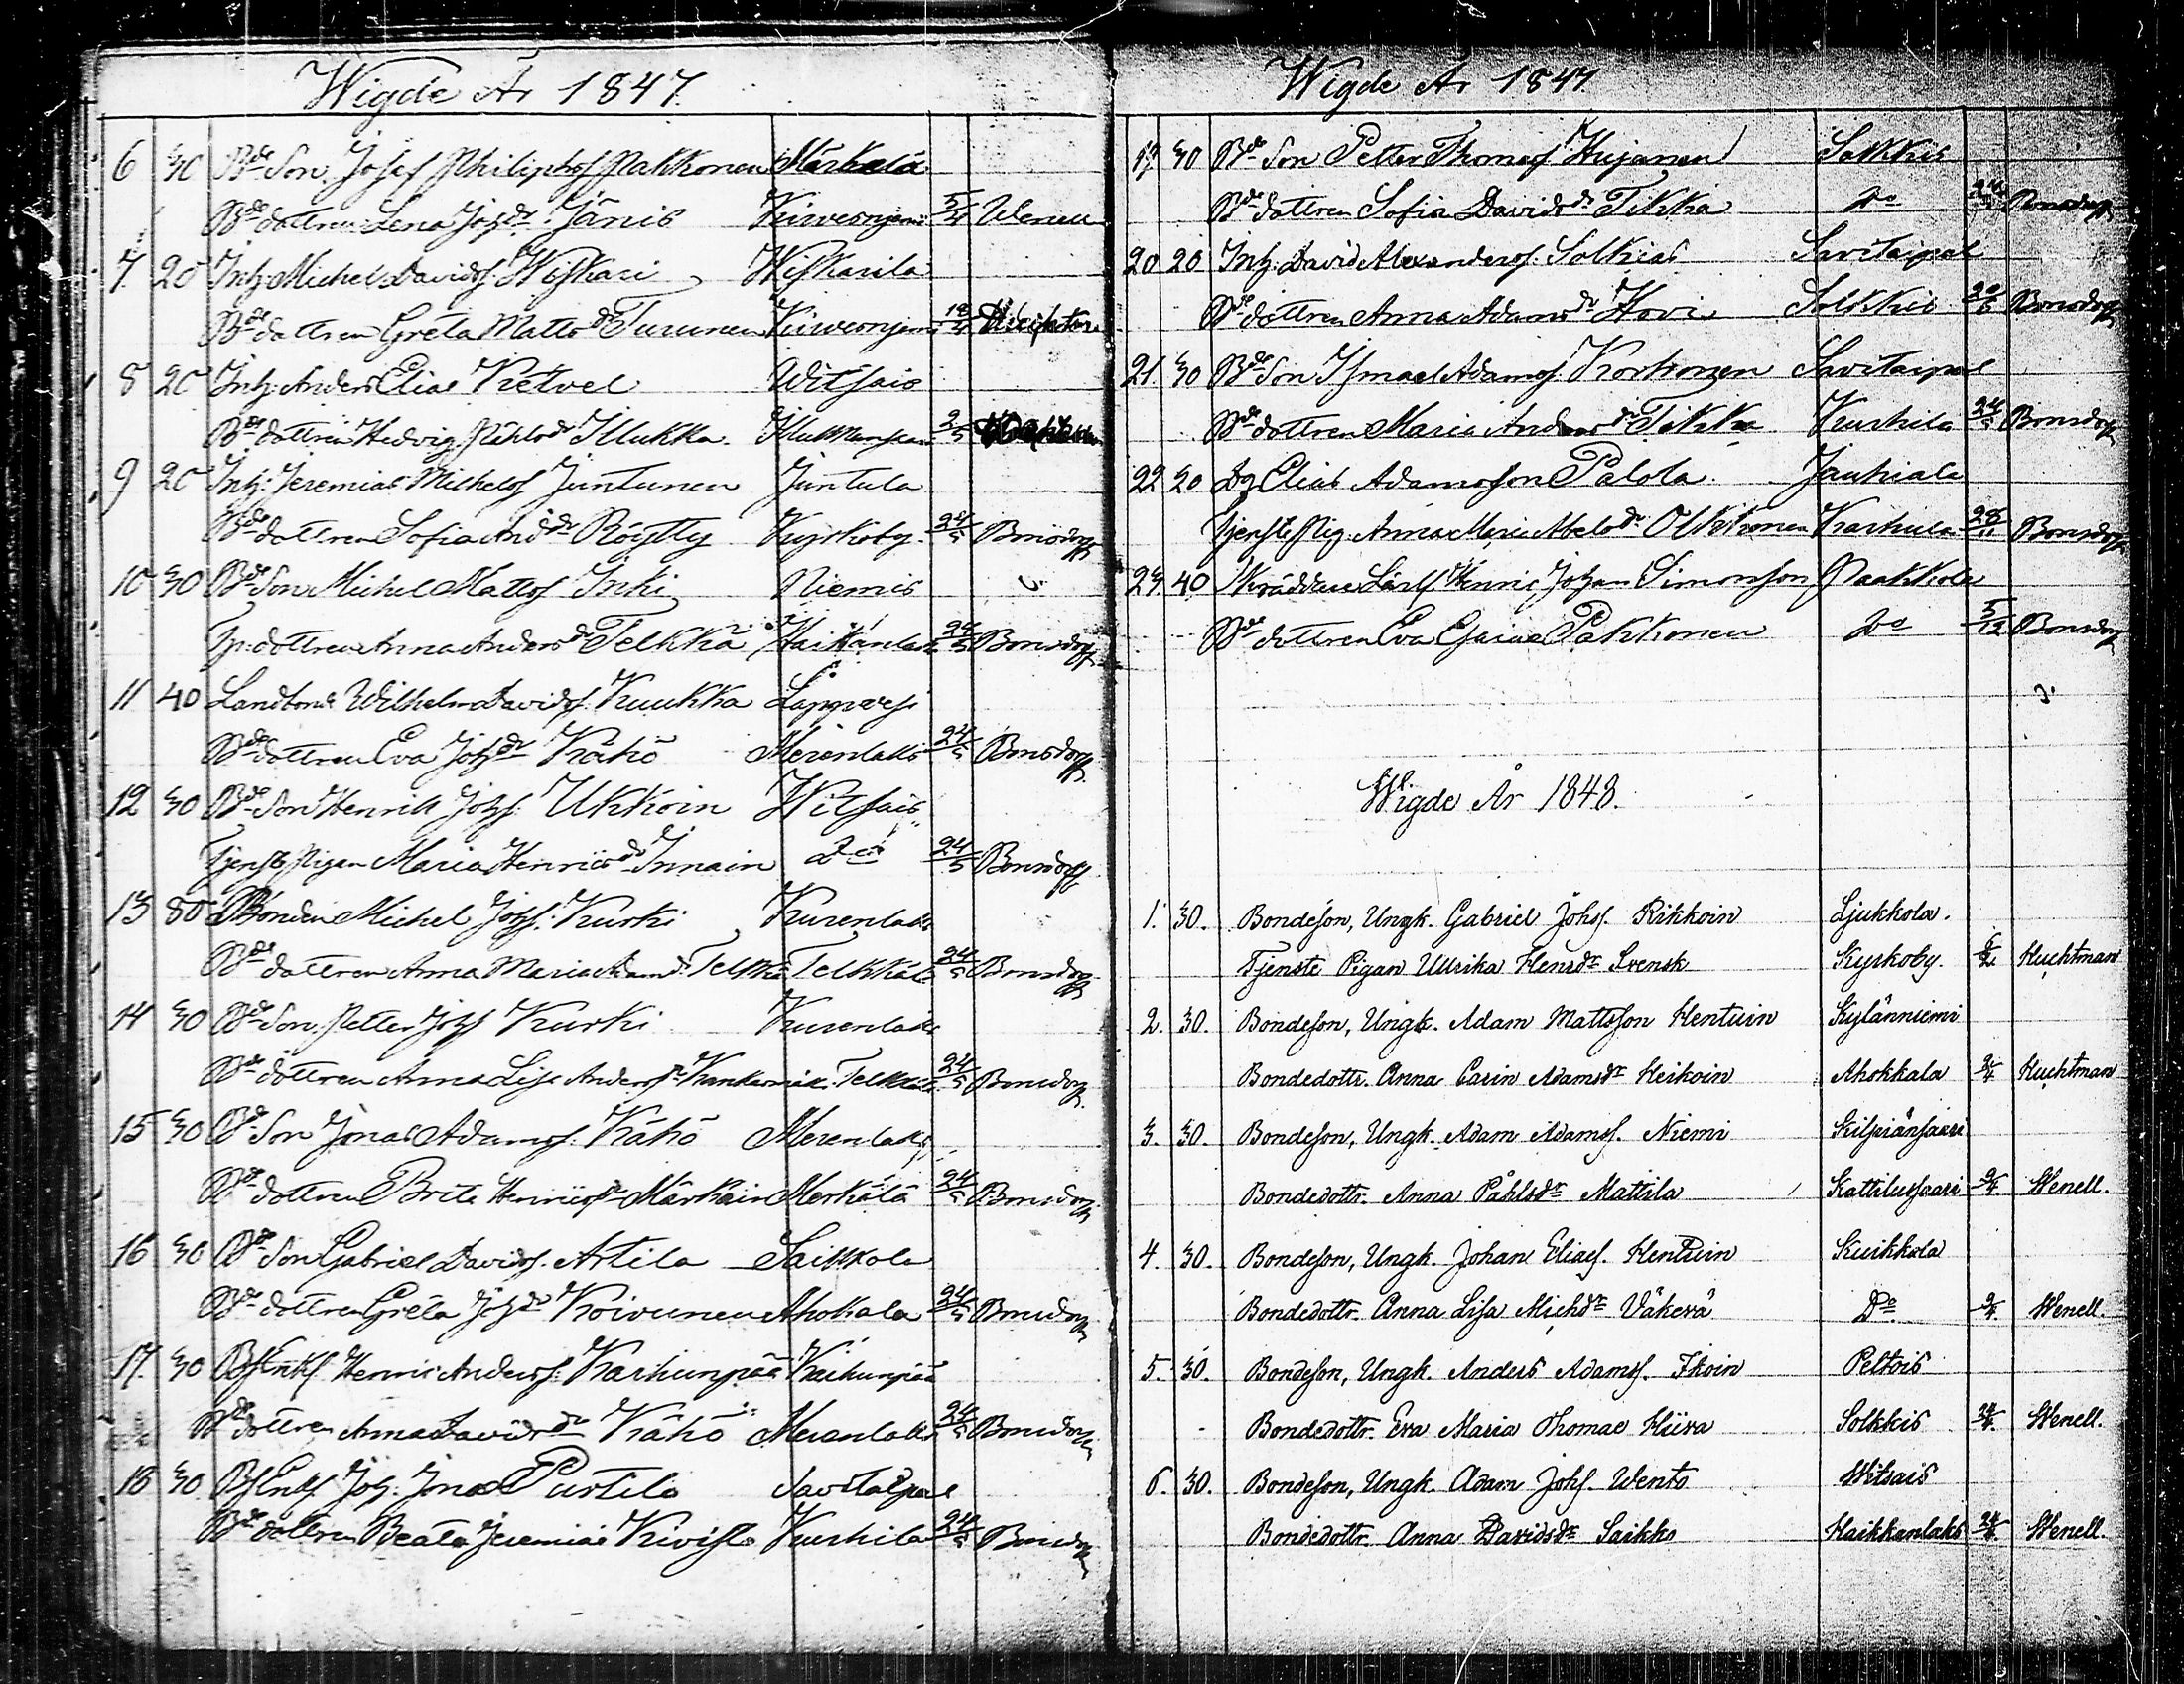 Wigde År 1847.
6 30 Bde Son Josef Philipsos Pakkonen Märkälä
Bde dottren Lena Johdr Jänis Kirvesniemi 5/4 Wenell
7 20 Inh. Michel Davidss. Wiskari Wiskarila
Bde dottren Greta Mattsdr Turunen Kirvesniemi
8 20 Inh. Anders Elias Ketvel Witsais
Bde dottren Hedvig Påhlsdr Illukka 3/5
9 20 Inh: Jeremias Michels Juntunen Juntula
Bde dottren Sofia Anddr Röytty Kyrkoby 24/5 Bonsdorff
10 30 Bde Son Michel Mattss Inki Niemis
dottren Anna Andersdr Telkkä Haikkanlaks 24/5 Bonsdorff
11 40 Landbond Wilhelm Davidss. Kuukka Lappvesi
Bde dottren Eva Johdr Kähö Merenlaks 24/5 Bonsdorff
12 30 Bde Son Henrik Johs: Ukkoin Witsais
Tjenste Pigan Maria Henricsdr Innain Do 24/5 Bonsdorff
13 80 Bonden Michel Johs: Kurki Kurenlaks
Bde dottren Anna Maria Adamsd: Telkkä Telkkälä 24/5 Bonsdorff
14 30 Bde Son Petter Johs Kurki Kurenlaks
Bde dottren Anna Lisa Andersdr 24/5 Bonsdorff
15 30 Bde Son Jonas Adamss. Kähö Merenlaks
Bde dottren Brita Henricsdr Märkäin Merkälä 24/5 Bonsdorff
16 30 Bde Son Gabriel Davidss. Artila Saikkola
Bde dottren Greta Johdr Koivunen Ahokala 24/5 Bonsdorff
17. 30 Henric Anderss. Karhunpää Karhunpää
Bde dottren Anna Davidsdr Kähö Merenlaks 24/5 Bonsdorff
18 30 Joh. Jonas Purtila Savitaipal
Bde dottren Beata Jeremias Kivistö Kurhila 24/5 Bonsdorff
Wigde År 1847.
19. 30 Bde Son Petter Thomass. Hujanen Solkkis
Bde dottren Sofia Davidsdr Tikka Do Bonsdorff
20 20 Inh. David Alexanderss. Solkias Savitaipal
Bde dottren Anna Adamsdr Hovi Solkkis Bonsdorff
21. 30 Bde Son Ismael Adamss. Korhonen Savitaipal
Bde dottren Maria Andersdr Tikka Kurhila 24/5 Bonsdorff
22 20 Dg Elias Adamsson Palola. Jauhiala
Tjenste Pig. Anna Maria Abelsdr Olkkonen Karhula 28/11 Bonsdorff
23. 40 Skräddare Lärl Henric Johan Simonsson Paakkola
Bde dottren Eva Pakkonen Do 5/12 Bonsdorff
Wigde År 1848.
1. 30. Bondeson, Ungk. Gabriel Johss. Rikkoin Ljukkola.
Tjenste Pigan Ullrika Hensdr Svensk Kyrkoby. 6/2 Huchtman
2. 30. Bondeson, Ungk. Adam Mattsson Hentuin Kylänniemi
Bondedottr. Anna Carin Adamsdr Heikoin Ahokkala Huchtman
3. 30. Bondeson, Ungk. Adam Adamss. Niemi Kilpiänsaari
Bondedottr. Anna Påhlsdr Mattila Kattilussaari Wenell.
4. 30. Bondeson, Ungk. Johan Eliass. Hentuin Kuikkola
Bondedottr. Anna Lisa Michdr Väkevä Do Wenell.
5. 30. Bondeson, Ungk. Anders Adamss. Ikoin Peltois
Bondedottr. Eva Maria Thomae Hiira Solkkis 24/4. Wenell.
6. 30. Bondeson, Ungk. Adam Johss. Wento Witsais
Bondedottr. Anna Davidsdr Saikko Haikkanlaks 24/4. Wenell.